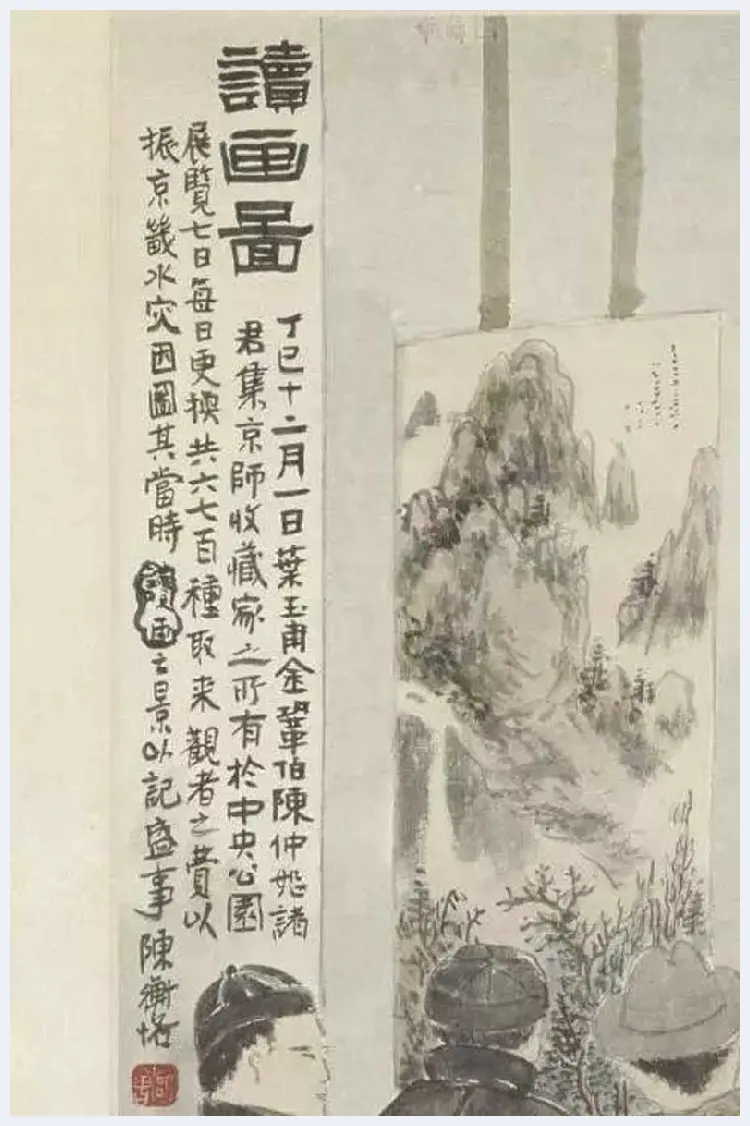 讀画圖
丁巳十二月一日葉玉甫金鞏伯陳仲恕諸
君集京師收藏家之所有於中央公園
展覽七日每日更換共六七百種取来觀者之費以
振京畿水灾因圖其當時讀画之景以記盛事陳衡恪